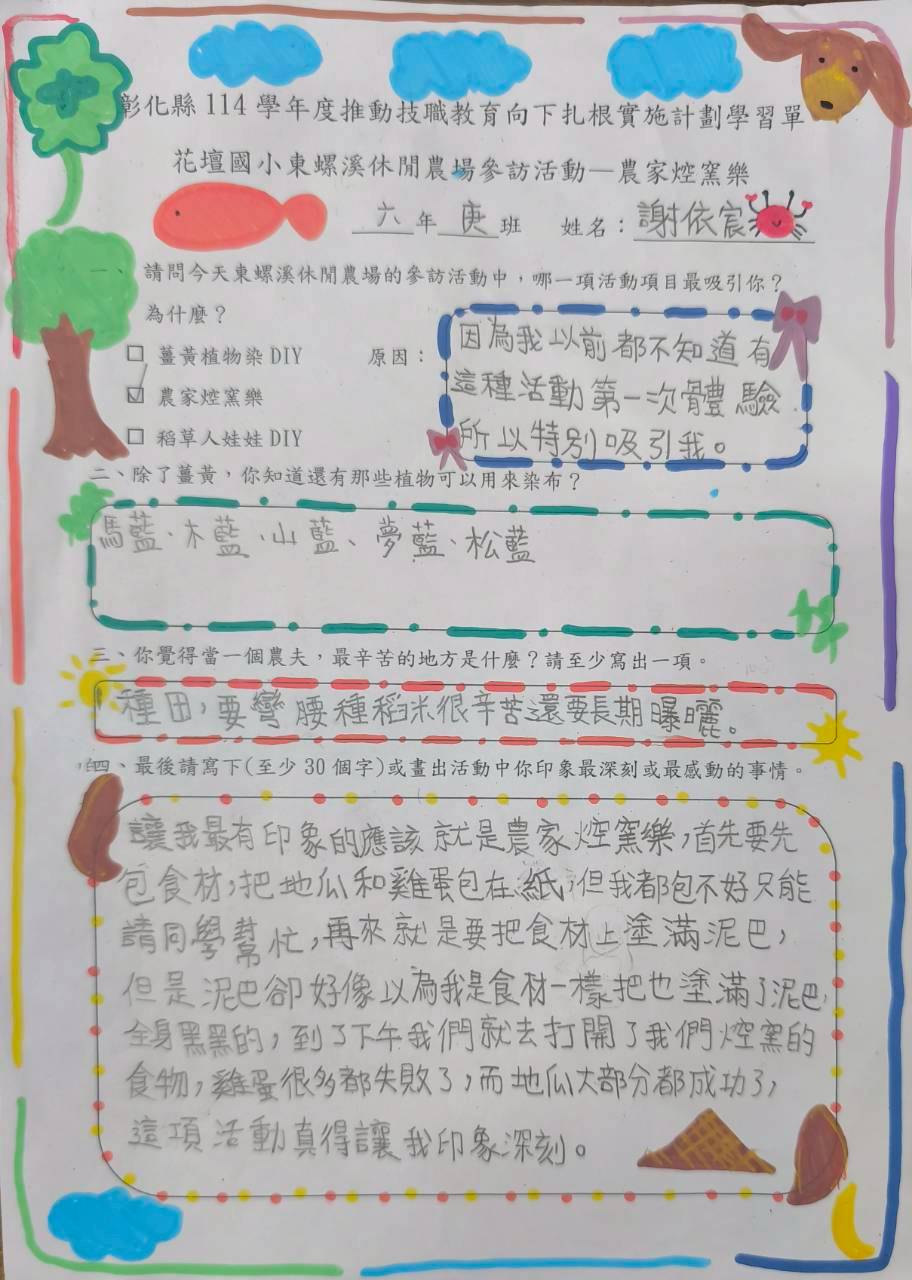 彰化縣 114 學年度推動技職教育向下扎根實施計劃學習單
花壇國小東螺溪休閒農場參訪活動—農家焢窯樂
六年庚班 姓名：謝依宸
一、請問今天東螺溪休閒農場的參訪活動中，哪一項活動項目最吸引你？
為什麼？
□ 薑黃植物染 DIY 原因：
☑ 農家焢窯樂
□ 稻草人娃娃 DIY
因為我以前都不知道有
這種活動第一次體驗
所以特別吸引我。
二、除了薑黃，你知道還有那些植物可以用來染布？
馬藍、木藍、山藍、蓼藍、松藍
三、你覺得當一個農夫，最辛苦的地方是什麼？請至少寫出一項。
種田，要彎腰種稻米很辛苦還要長期曝曬。
四、最後請寫下(至少 30 個字)或畫出活動中你印象最深刻或最感動的事情。
讓我最有印象的應該就是農家焢窯樂，首先要先
包食材，把地瓜和雞蛋包在紙，但我都包不好只能
請同學幫忙，再來就是要把食材上塗滿泥巴，
但是泥巴卻好像以為我是食材一樣把也塗滿了泥巴，
全身黑黑的，到了下午我們就去打開了我們焢窯的
食物，雞蛋很多都失敗了，而地瓜大部分都成功了，
這項活動真得讓我印象深刻。